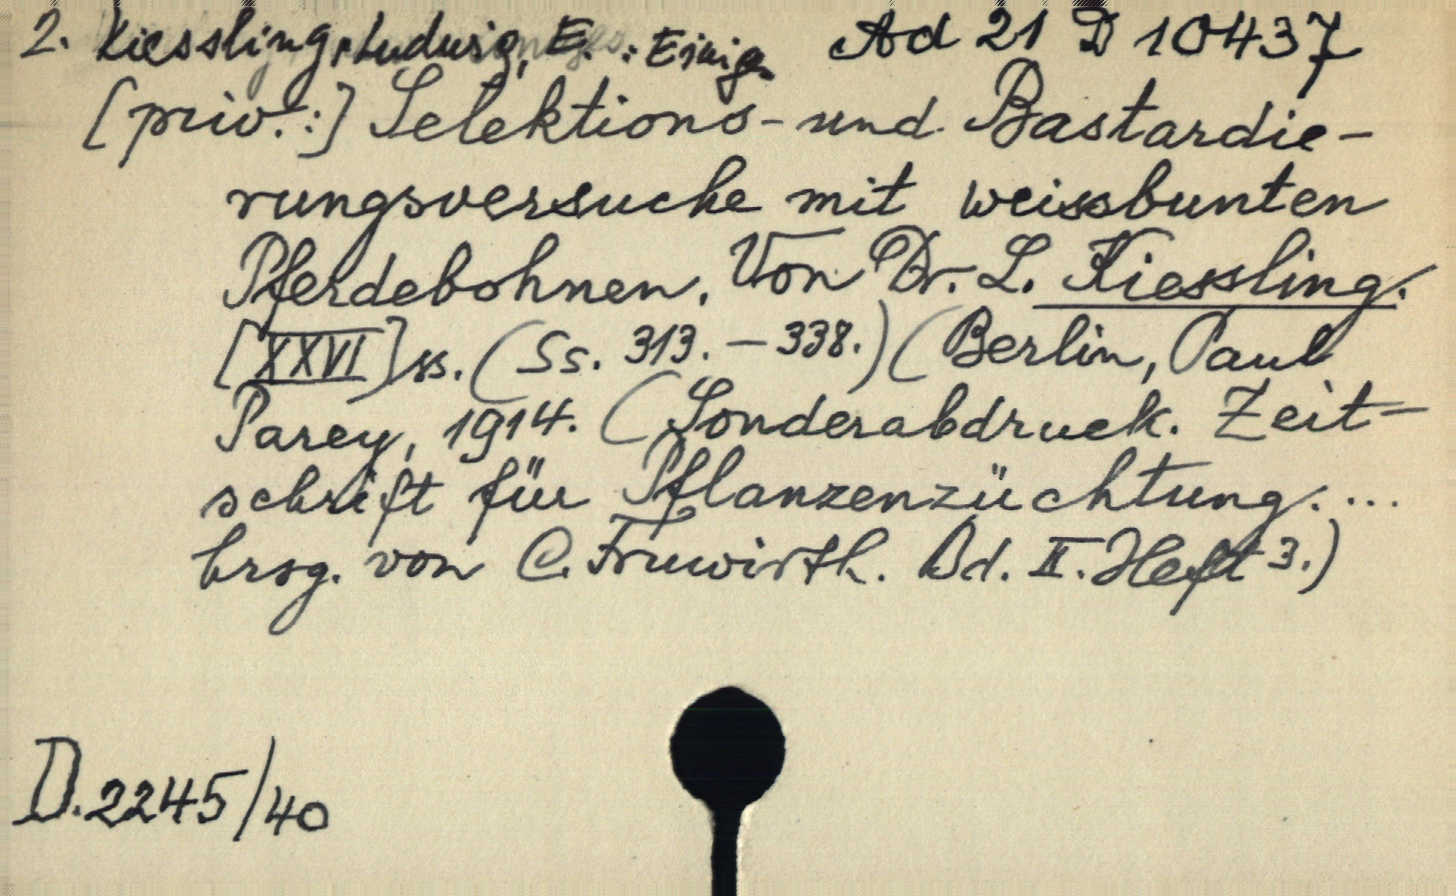 2. Kiessling, Ludwig, E. : Einige Ad 21 D 10437
[priv.:] Selektions- und Bastardie-
rungsversuche mit weissbunten
Pferdebohnen. Von Dr. L. Kiessling.
[XXVI] ss. (Ss. 313. - 338.) (Berlin, Paul
Parey, 1914. (Sonderabdruck. Zeit-
schrift für Pflanzenzüchtung. ...
hrsg. von C. Fruwirth. Bd. II. Heft 3.)
D. 2245/40